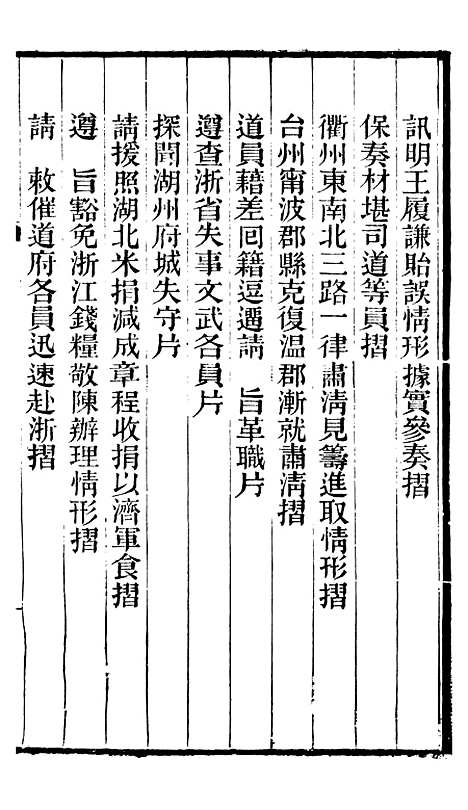 訊明王履謙貽誤情形據實參奏摺
保奏材堪司道等員摺
衢州東南北三路一律肅淸見籌進取情形摺
台州甯波郡縣克復温郡漸就肅淸摺
道員藉差回籍逗遛請　旨革職片
遵查浙省失事文武各員片
探聞湖州府城失守片
請援照湖北米捐減成章程收捐以濟軍食摺
遵　旨豁免浙江錢糧敬陳辦理情形摺
請　敕催道府各員迅速赴浙摺